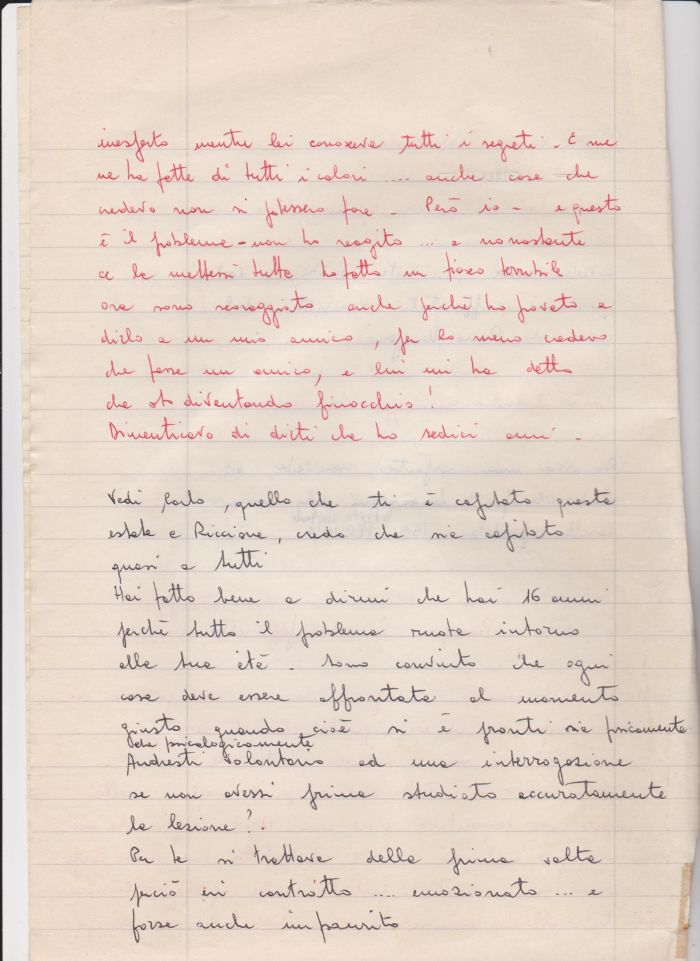 inesperto mentre lei conosceva tutti i segreti. E me
ne ha fatte di tutti i colori .... anche cose che
credevo non si potessero fare. Però io - e questo
è il problema - non ho reagito ... e nonostante
ce la mettessi tutta ho fatto un fiasco terribile
ora sono scoraggiato anche perchè ho provato a
dirlo a un mio amico, per lo meno credevo
che fosse un amico, e lui mi ha detto
che sto diventando finocchio!
Dimenticavo di dirti che ho sedici anni.
Vedi Carlo, quello che ti è capitato questa
estate a Riccione, credo che sia capitato
quasi a tutti
Hai fatto bene a dirmi che hai 16 anni
perchè tutto il problema ruota intorno
alla tua età. Sono convinto che ogni
cosa deve essere affrontata al momento
giusto quando cioè si è pronti sia fisicamente
che psicologicamente
Andresti volontario ad una interrogazione
se non avessi prima studiato accuratamente
la lezione?
Per te si trattava della prima volta
perciò eri contratto .... emozionato ... e
forse anche impaurito